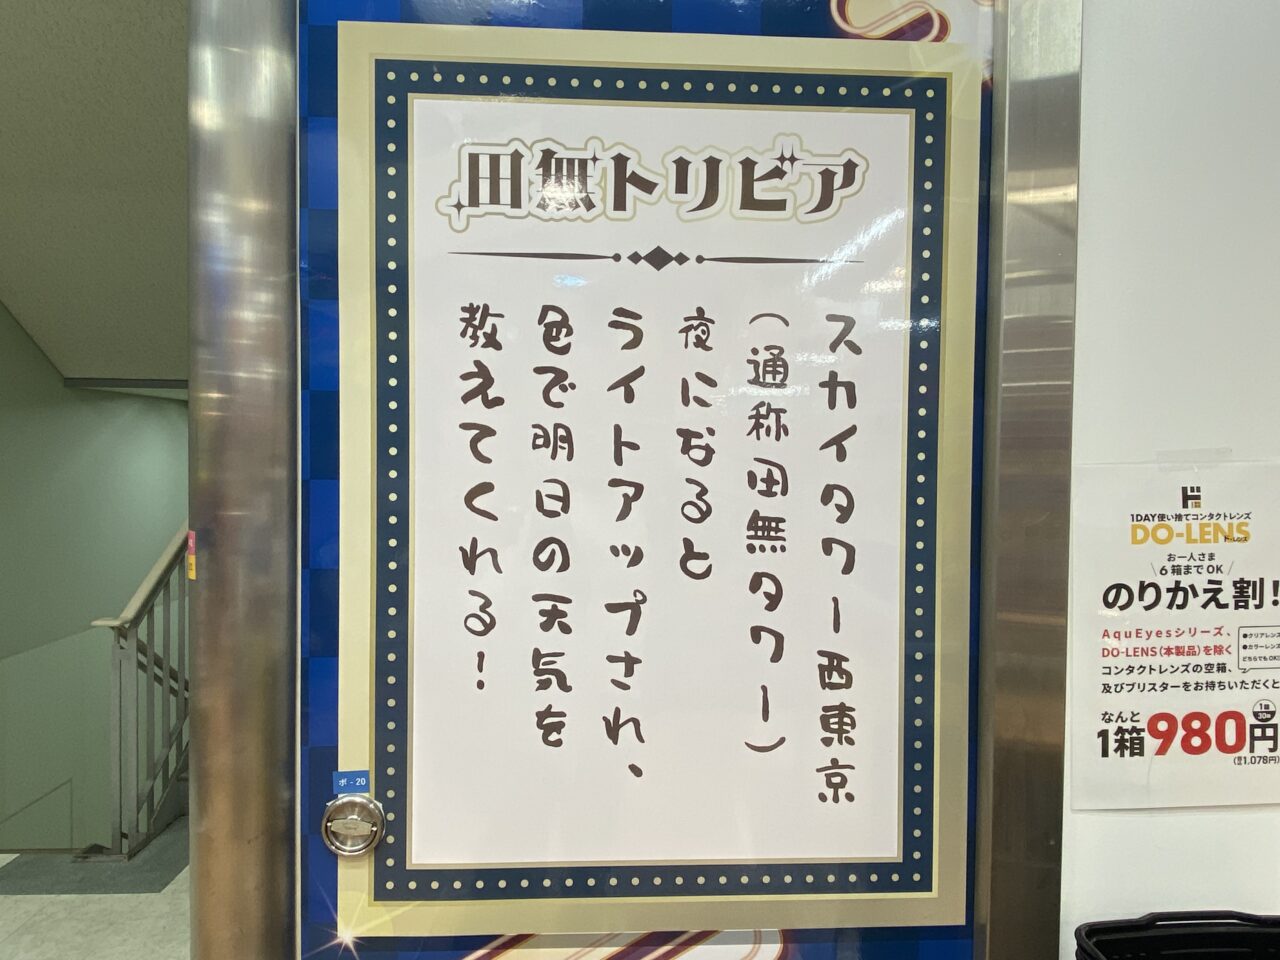 田無トリビア
スカイタワー西東京
（通称田無タワー）
夜になると
ライトアップされ、
色で明日の天気を
教えてくれる！
ポ-20
ド
1DAY使い捨てコンタクトレンズ
DO-LENS
ド-レンズ
お一人さま
6箱までOK
のりかえ割！
AquEyesシリーズ、
DO-LENS（本製品）を除く
コンタクトレンズの空箱、
及びブリスターをお持ちいただくと
●クリアレンズ
●カラーレンズ
どちらでもOK!
なんと
1箱980円
1箱
30枚
(税込1,078円)